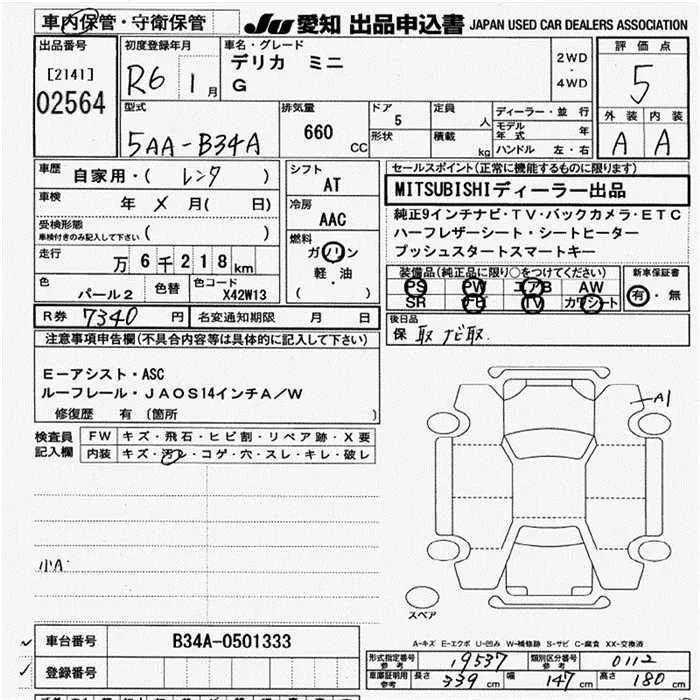 車内保管・守衛保管
JU 愛知 出品申込書 JAPAN USED CAR DEALERS ASSOCIATION
出品番号
[2141]
02564
初度登録年月
R6 1月
車名・グレード
デリカ ミニ
G
2WD
・
4WD
評価点
5
外装 内装
A A
型式
5AA-B34A
排気量
660 CC
ドア
5
形状
定員
人
積載
kg
ディーラー・並行
モデル年式 年
ハンドル 左・右
車歴
自家用・( レンタ )
車検
年 メ 月( 日)
受検形態
車検付きのみ記入して下さい ( )
走行
万6千218km
色
パール2
色替
色コード
X42W13
シフト
AT
冷房
AAC
燃料
ガソリン
軽・油
( )
セールスポイント(正常に機能するものに限ります)
MITSUBISHIディーラー出品
純正9インチナビ・TV・バックカメラ・ETC
ハーフレザーシート・シートヒーター
プッシュスタートスマートキー
装備品(純正品に限り○をつけてください)
PS PW エアB AW
SR TV カワシート
新車保証書
有・無
R券 7340 円 名変通知期限 月 日
後日品
保 取 ナビ取
注意事項申告欄(不具合内容等は具体的に記入して下さい)
E-アシスト・ASC
ルーフレール・JAOS14インチA/W
修復歴 有 〔箇所 〕
検査員
記入欄
FW キズ・飛石・ヒビ割・リペア跡・X要
内装 キズ・汚レ・コゲ・穴・スレ・キレ・破レ
小A
A1
スペア
A-キズ E-エクボ U-凹み W-補修跡 S-サビ C-腐食 XX-交換済
車台番号 B34A-0501333
登録番号
形式指定番号 参考 19537 類別区分番号 参考 0112
車庫証明用 参考 長さ 339 cm 幅 147 cm 高さ 180 cm